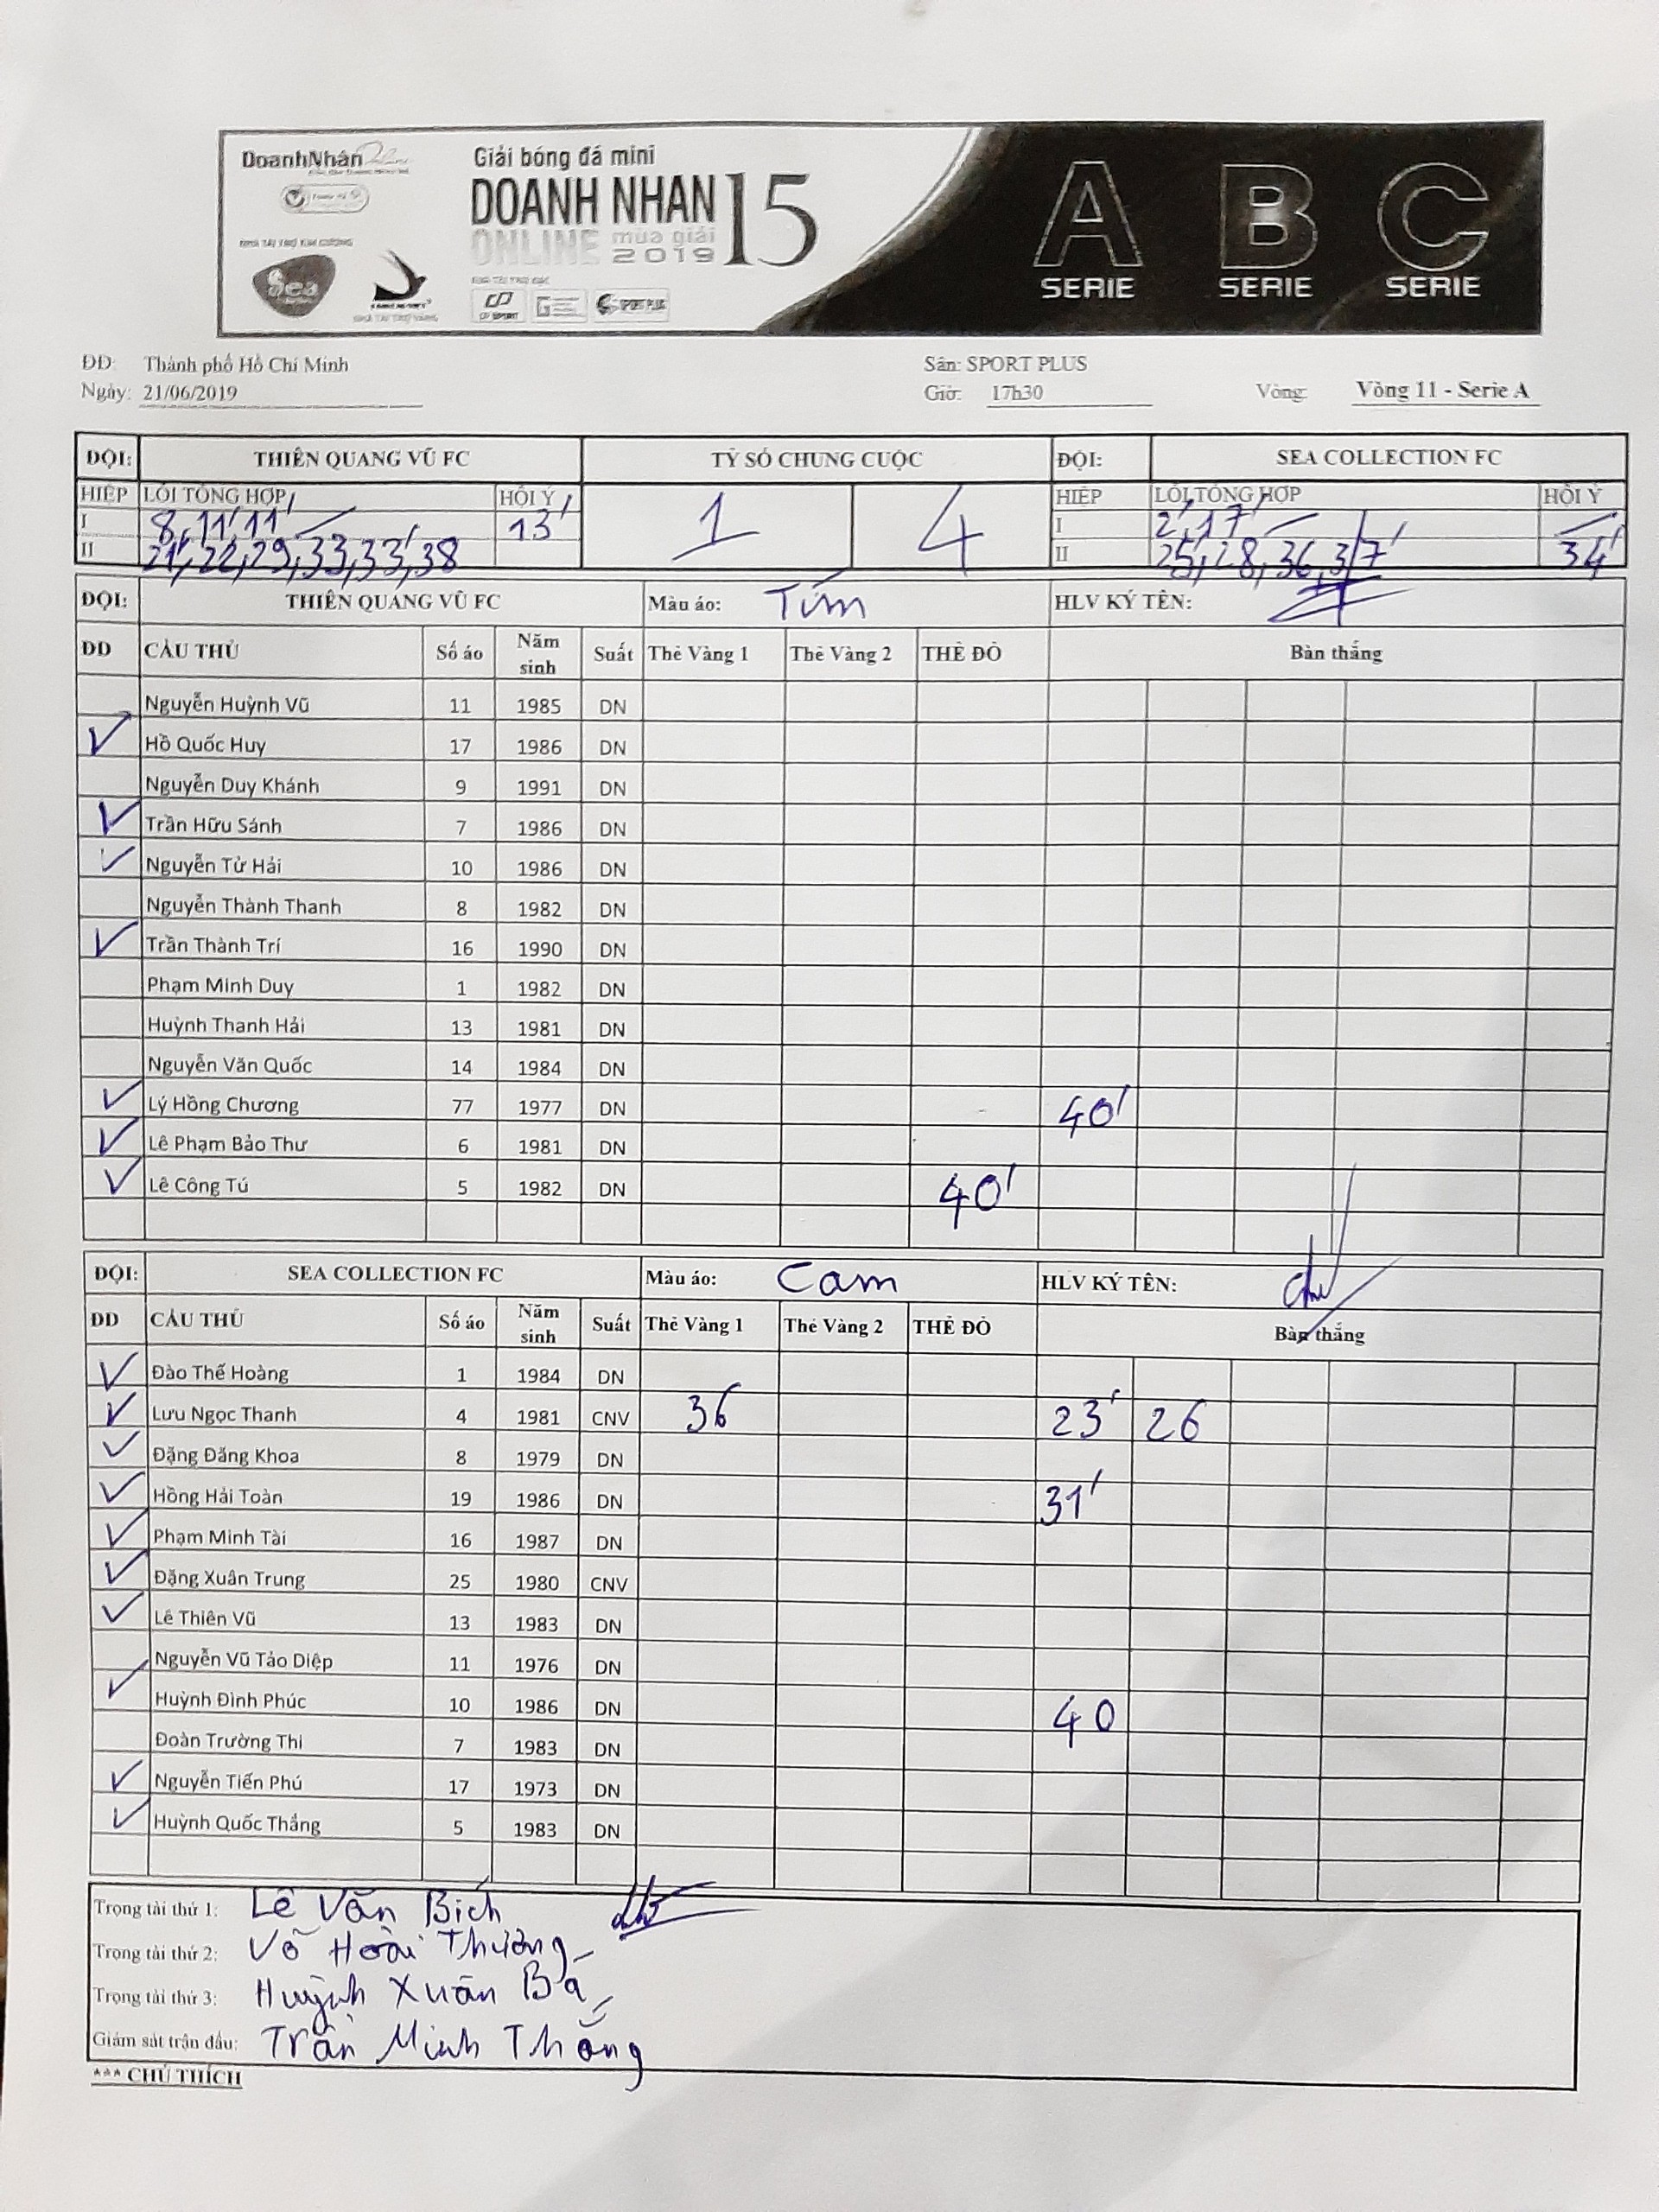 DoanhNhân Online
Giải bóng đá mini
DOANH NHAN 15
ONLINE mùa giải
2019
NHÀ TÀI TRỢ KIM CƯƠNG
Sea
NHÀ TÀI TRỢ VÀNG
SPORT PLUS
A B C
SERIE SERIE SERIE
ĐĐ: Thành phố Hồ Chí Minh Sân: SPORT PLUS
Ngày: 21/06/2019 Giờ: 17h30 Vòng: Vòng 11 - Serie A
ĐỘI: THIÊN QUANG VŨ FC TỶ SỐ CHUNG CUỘC ĐỘI: SEA COLLECTION FC
HIỆP LỖI TỔNG HỢP HỘI Ý 1 4 HIỆP LỖI TỔNG HỢP HỘI Ý
I 8, 11' 11' 13' I 2', 17'
II 21', 22, 29, 33, 33', 38 II 25', 28, 36, 37' 34'
ĐỘI: THIÊN QUANG VŨ FC Màu áo: Tím HLV KÝ TÊN:
DD CẦU THỦ Số áo Năm sinh Suất Thẻ Vàng 1 Thẻ Vàng 2 THẺ ĐỎ Bàn thắng
Nguyễn Huỳnh Vũ 11 1985 DN
✓ Hồ Quốc Huy 17 1986 DN
Nguyễn Duy Khánh 9 1991 DN
✓ Trần Hữu Sánh 7 1986 DN
✓ Nguyễn Tử Hải 10 1986 DN
Nguyễn Thành Thanh 8 1982 DN
✓ Trần Thành Trí 16 1990 DN
Phạm Minh Duy 1 1982 DN
Huỳnh Thanh Hải 13 1981 DN
Nguyễn Văn Quốc 14 1984 DN
✓ Lý Hồng Chương 77 1977 DN 40'
✓ Lê Phạm Bảo Thư 6 1981 DN
✓ Lê Công Tú 5 1982 DN 40'
ĐỘI: SEA COLLECTION FC Màu áo: Cam HLV KÝ TÊN:
DD CẦU THỦ Số áo Năm sinh Suất Thẻ Vàng 1 Thẻ Vàng 2 THẺ ĐỎ Bàn thắng
✓ Đào Thế Hoàng 1 1984 DN
✓ Lưu Ngọc Thanh 4 1981 CNV 36 23' 26
✓ Đặng Đăng Khoa 8 1979 DN
✓ Hồng Hải Toàn 19 1986 DN 31'
✓ Phạm Minh Tài 16 1987 DN
✓ Đặng Xuân Trung 25 1980 CNV
✓ Lê Thiên Vũ 13 1983 DN
Nguyễn Vũ Tảo Diệp 11 1976 DN
✓ Huỳnh Đình Phúc 10 1986 DN 40
Đoàn Trường Thi 7 1983 DN
✓ Nguyễn Tiến Phú 17 1973 DN
✓ Huỳnh Quốc Thắng 5 1983 DN
Trọng tài thứ 1: Lê Văn Bích
Trọng tài thứ 2: Võ Hoài Thương
Trọng tài thứ 3: Huỳnh Xuân Bá
Giám sát trận đấu: Trần Minh Thắng
*** CHÚ THÍCH